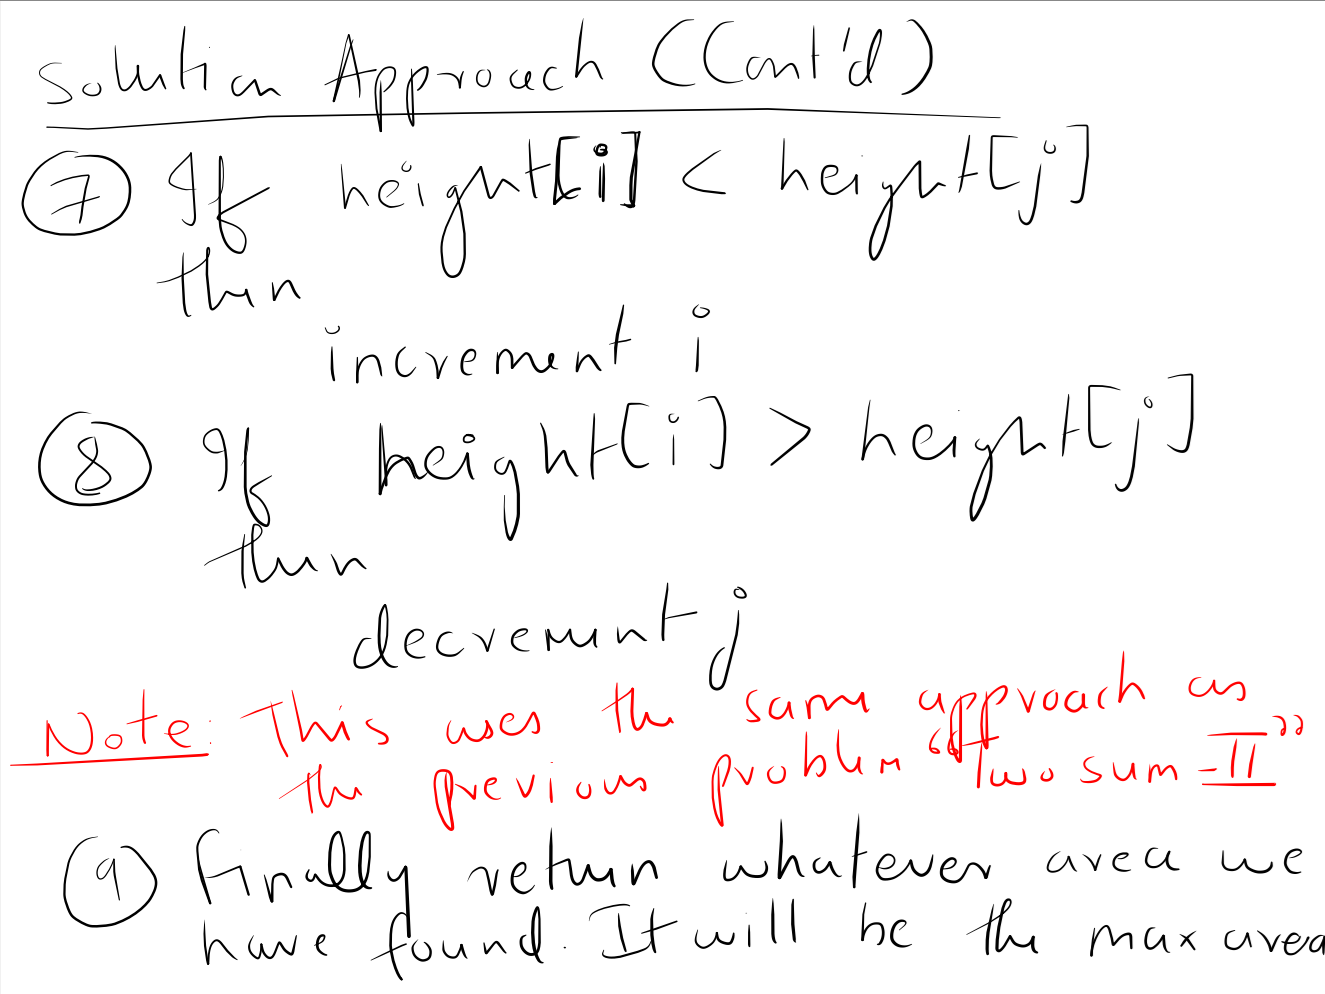 Solution Approach (Cont'd)
7 If height[i] < height[j]
then
increment i
8 If height[i] > height[j]
then
decrement j
Note: This uses the same approach as
the previous problem "Two sum - II"
9 Finally return whatever area we
have found. It will be the max area